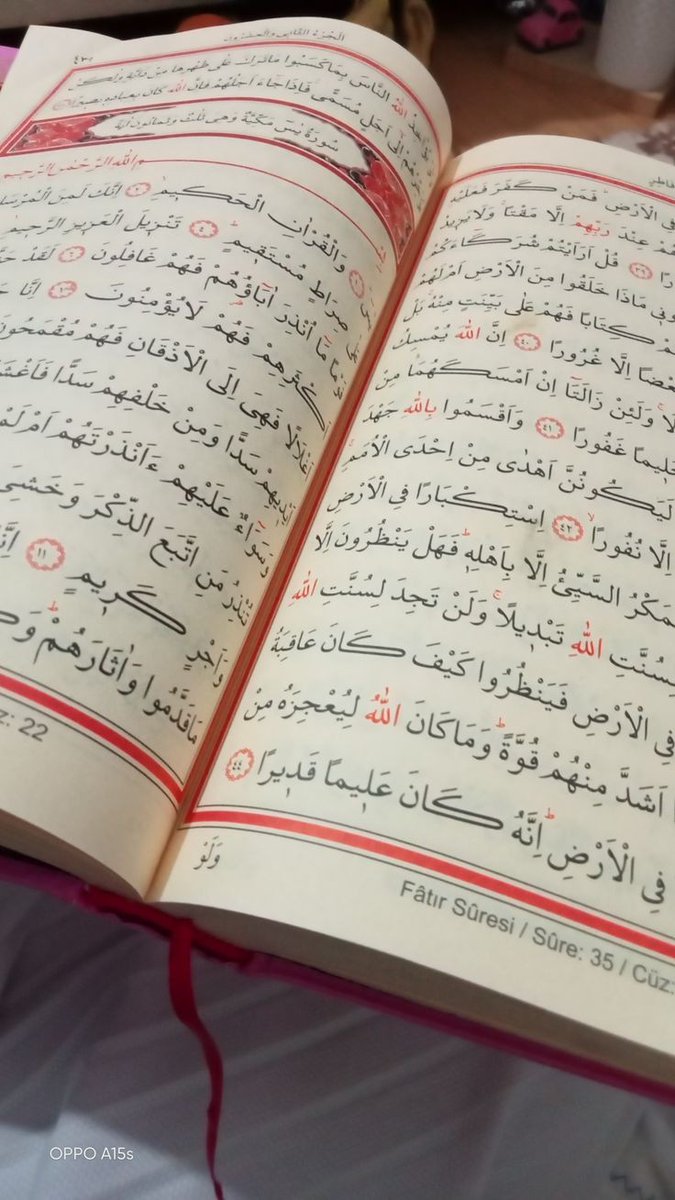 فاطر
فِي الْاَرْضِ فَمَنْ كَفَرَ فَعَلَيْهِ
عِنْدَ رَبِّهِمْ اِلَّا مَقْتًا وَلَا يَزِيدُ
٣٩ قُلْ اَرَاَيْتُمْ شُرَكَٓاءَكُمُ
مَاذَا خَلَقُوا مِنَ الْاَرْضِ اَمْ لَهُمْ
كِتَابًا فَهُمْ عَلٰى بَيِّنَتٍ مِنْهُ بَلْ
اِلَّا غُرُورًا ٤٠ اِنَّ اللّٰهَ يُمْسِكُ
وَلَئِنْ زَالَتَٓا اِنْ اَمْسَكَهُمَا مِنْ
حَلِيمًا غَفُورًا ٤١ وَاَقْسَمُوا بِاللّٰهِ جَهْدَ
لَيَكُونُنَّ اَهْدٰى مِنْ اِحْدَى الْاُمَمِ
اِلَّا نُفُورًا ٤٢ اِسْتِكْبَارًا فِي الْاَرْضِ
السَّيِّئُ اِلَّا بِاَهْلِهِ فَهَلْ يَنْظُرُونَ اِلَّا
لِسُنَّتِ اللّٰهِ تَبْدِيلًا وَلَنْ تَجِدَ لِسُنَّتِ اللّٰهِ
فِي الْاَرْضِ فَيَنْظُرُوا كَيْفَ كَانَ عَاقِبَةُ
اَشَدَّ مِنْهُمْ قُوَّةً وَمَا كَانَ اللّٰهُ لِيُعْجِزَهُ مِنْ
فِي الْاَرْضِ اِنَّهُ كَانَ عَلِيمًا قَدِيرًا ٤٤
وَلَوْ
Fâtır Sûresi / Sûre: 35 / Cüz:
الجزء الثاني والعشرون
اللّٰهُ النَّاسَ بِمَا كَسَبُوا مَا تَرَكَ عَلٰى ظَهْرِهَا مِنْ دَٓابَّةٍ وَلٰكِنْ
اِلٰٓى اَجَلٍ مُسَمًّى فَاِذَا جَٓاءَ اَجَلُهُمْ فَاِنَّ اللّٰهَ كَانَ بِعِبَادِهِ بَصِيرًا
سُورَةُ يٰسٓ مَكِّيَّةٌ وَهِيَ ثَلٰثٌ وَثَمَانُونَ اٰيَةً
اللّٰهِ الرَّحْمٰنِ الرَّحِيمِ
وَالْقُرْاٰنِ الْحَكِيمِ ٢ اِنَّكَ لَمِنَ الْمُرْسَلِ
صِرَاطٍ مُسْتَقِيمٍ ٤ تَنْزِيلَ الْعَزِيزِ الرَّحِيمِ
مَٓا اُنْذِرَ اٰبَٓاؤُهُمْ فَهُمْ غَافِلُونَ ٦ لَقَدْ
اَكْثَرِهِمْ فَهُمْ لَا يُؤْمِنُونَ ٧ اِنَّا
اَغْلَالًا فَهِيَ اِلَى الْاَذْقَانِ فَهُمْ مُقْمَحُونَ
اَيْدِيهِمْ سَدًّا وَمِنْ خَلْفِهِمْ سَدًّا
وَسَوَٓاءٌ عَلَيْهِمْ ءَاَنْذَرْتَهُمْ اَمْ لَمْ
تُنْذِرُ مَنِ اتَّبَعَ الذِّكْرَ وَخَشِيَ
وَاَجْرٍ كَرِيمٍ ١١
مَا قَدَّمُوا وَاٰثَارَهُمْ
22
OPPO A15s